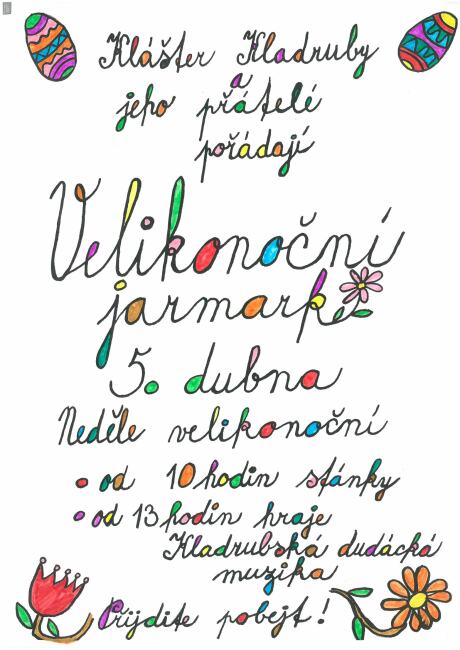 Klášter Kladruby
a
jeho přátelé
pořádají
Velikonoční
jarmark
5. dubna
Neděle velikonoční
• od 10 hodin stánky
• od 13 hodin hraje
Kladrubská dudácká
muzika
Přijdite pobejt!